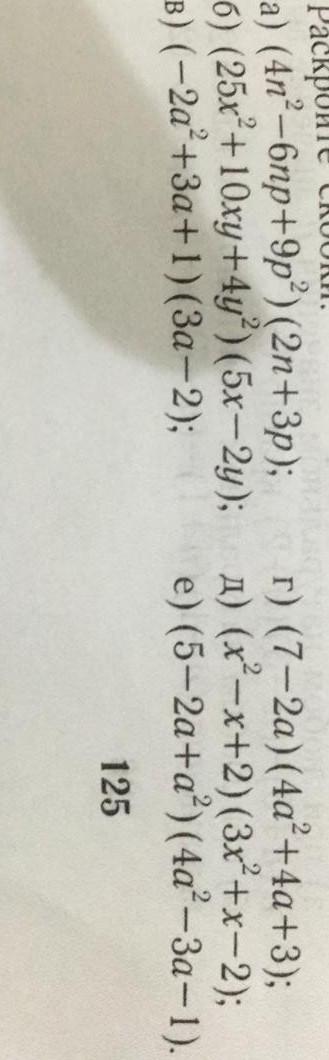 Раскройте скобки:
а) (4n²−6np+9p²)(2n+3p);
б) (25x²+10xy+4y²)(5x−2y);
в) (−2a²+3a+1)(3a−2);
г) (7−2a)(4a²+4a+3);
д) (x²−x+2)(3x²+x−2);
е) (5−2a+a²)(4a²−3a−1).
125